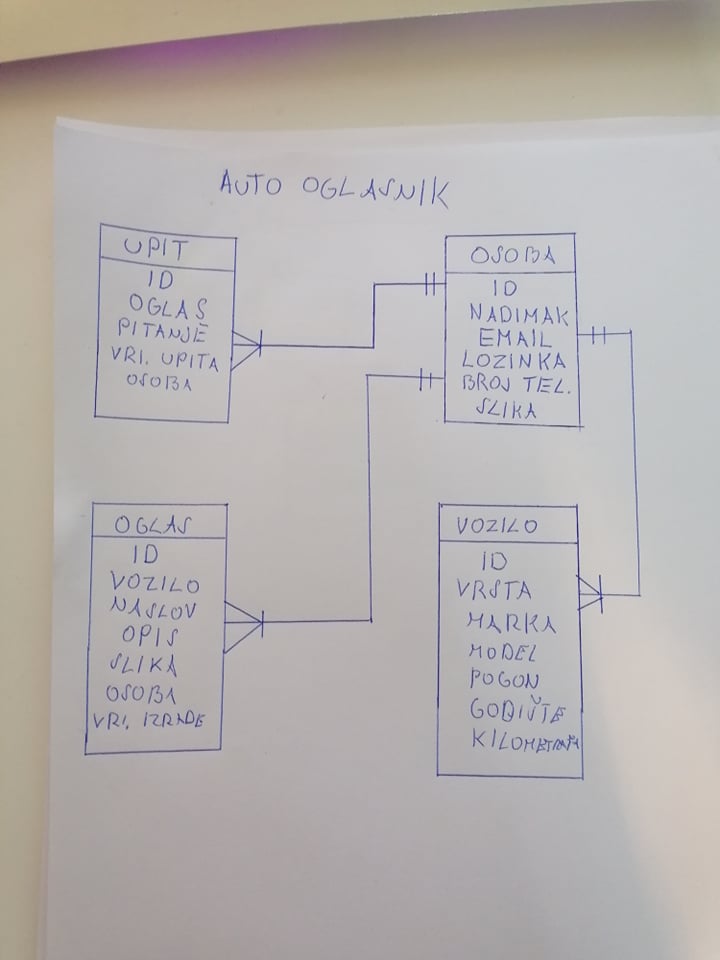 AUTO OGLASNIK
UPIT
ID
OGLAS
PITANJE
VRI. UPITA
OSOBA
OSOBA
ID
NADIMAK
EMAIL
LOZINKA
BROJ TEL.
SLIKA
OGLAS
ID
VOZILO
NASLOV
OPIS
SLIKA
OSOBA
VRI. IZRADE
VOZILO
ID
VRSTA
MARKA
MODEL
POGON
GODIŠTE
KILOMETRAŽA